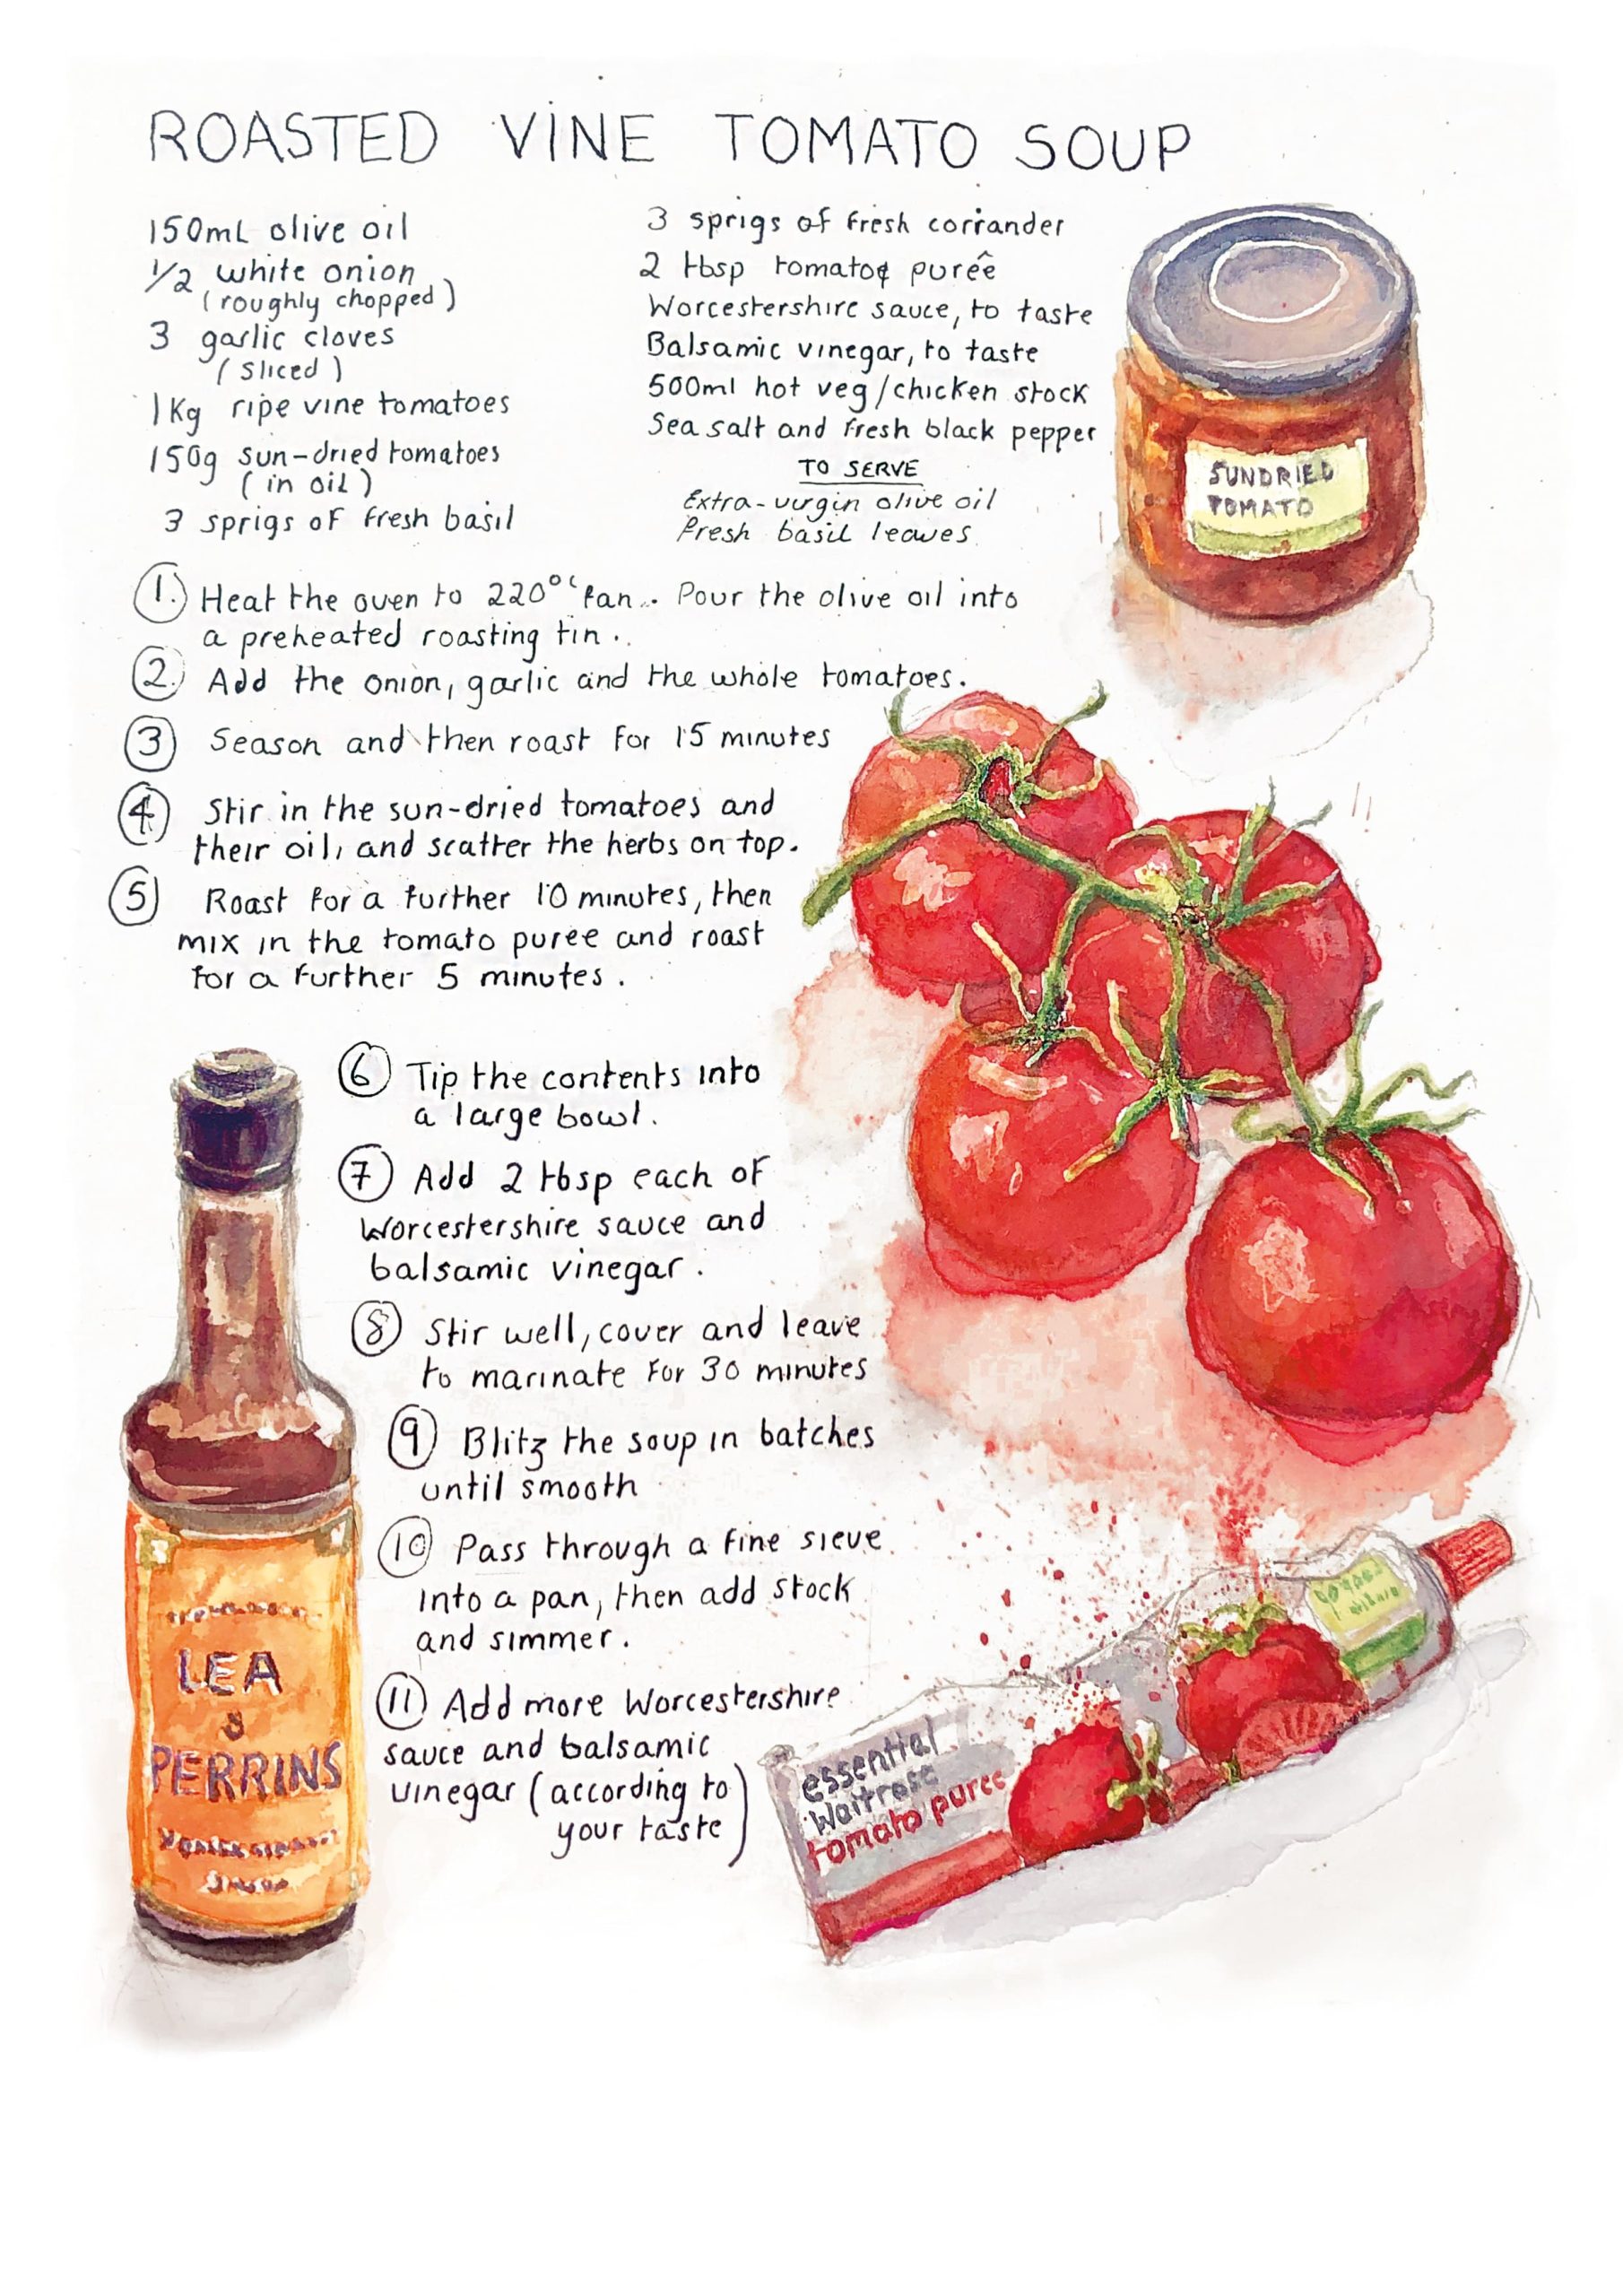 ROASTED VINE TOMATO SOUP
150mL olive oil
1/2 white onion
(roughly chopped)
3 garlic cloves
(sliced)
1Kg ripe vine tomatoes
150g sun-dried tomatoes
(in oil)
3 sprigs of fresh basil
3 sprigs of fresh corrander
2 tbsp tomato purée
Worcestershire sauce, to taste
Balsamic vinegar, to taste
500ml hot veg/chicken stock
Sea salt and fresh black pepper
TO SERVE
Extra-virgin olive oil
Fresh basil leaves.
SUNDRIED
TOMATO
1. Heat the oven to 220°C fan. Pour the olive oil into
a preheated roasting tin.
2. Add the onion, garlic and the whole tomatoes.
3 Season and then roast for 15 minutes
4 Stir in the sun-dried tomatoes and
their oil, and scatter the herbs on top.
5 Roast for a further 10 minutes, then
mix in the tomato puree and roast
for a further 5 minutes.
6 Tip the contents into
a large bowl.
7 Add 2 tbsp each of
Worcestershire sauce and
balsamic vinegar.
8 Stir well, cover and leave
to marinate for 30 minutes
9 Blitz the soup in batches
until smooth
10 Pass through a fine sieve
into a pan, then add stock
and simmer.
11 Add more Worcestershire
sauce and balsamic
vinegar (according to
your taste)
LEA
&
PERRINS
essential
Waitrose
tomato puree